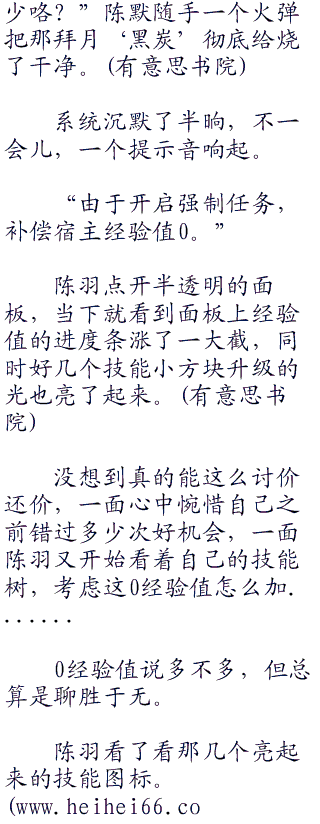 少咯？”陈默随手一个火弹
把那拜月‘黑炭’彻底给烧
了干净。(有意思书院)
系统沉默了半晌，不一
会儿，一个提示音响起。
“由于开启强制任务，
补偿宿主经验值0。”
陈羽点开半透明的面
板，当下就看到面板上经验
值的进度条涨了一大截，同
时好几个技能小方块升级的
光也亮了起来。(有意思书
院)
没想到真的能这么讨价
还价，一面心中惋惜自己之
前错过多少次好机会，一面
陈羽又开始看着自己的技能
树，考虑这0经验值怎么加.
......
0经验值说多不多，但总
算是聊胜于无。
陈羽看了看那几个亮起
来的技能图标。
(www.heihei66.co